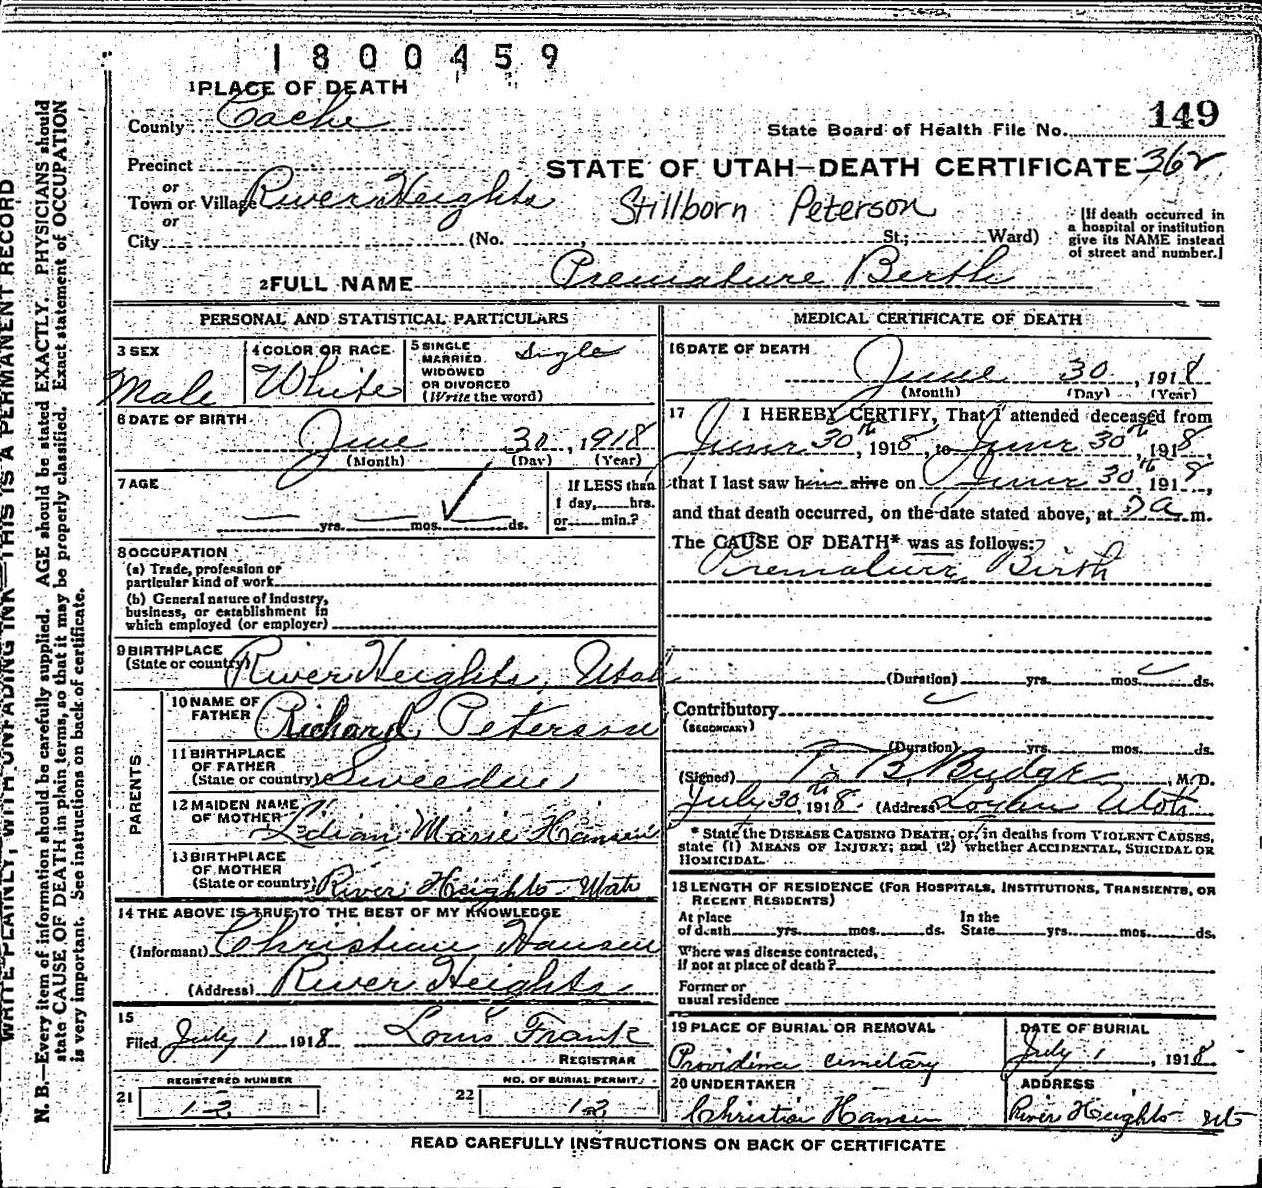 1800459
1 PLACE OF DEATH
149
County Cache
State Board of Health File No.
Precinct
STATE OF UTAH—DEATH CERTIFICATE 362
or
Town or Village River Heights
Stillborn Peterson
or
City (No. St.; Ward)
[If death occurred in
a hospital or institution
give its NAME instead
of street and number.]
2 FULL NAME Premature Berth
PERSONAL AND STATISTICAL PARTICULARS
3 SEX
Male
4 COLOR OR RACE
White
5 SINGLE
MARRIED
WIDOWED
OR DIVORCED
(Write the word)
Single
6 DATE OF BIRTH
June 30, 1918
(Month) (Day) (Year)
7 AGE
yrs. mos. ds.
If LESS than
1 day, hrs.
or min.?
8 OCCUPATION
(a) Trade, profession or
particular kind of work
(b) General nature of industry,
business, or establishment in
which employed (or employer)
9 BIRTHPLACE
(State or country) River Heights, Utah
PARENTS
10 NAME OF
FATHER Richard Peterson
11 BIRTHPLACE
OF FATHER
(State or country) Sweeden
12 MAIDEN NAME
OF MOTHER Lilian Marie Hansen
13 BIRTHPLACE
OF MOTHER
(State or country) River Heights Utah
14 THE ABOVE IS TRUE TO THE BEST OF MY KNOWLEDGE
(Informant) Christian Hansen
(Address) River Heights
15
Filed July 1 1918 Louis Frank
REGISTRAR
REGISTERED NUMBER
21 12
NO. OF BURIAL PERMIT
22 12
MEDICAL CERTIFICATE OF DEATH
16 DATE OF DEATH
June 30, 1918
(Month) (Day) (Year)
17 I HEREBY CERTIFY, That I attended deceased from
June 30th, 1918, to June 30th, 1918,
that I last saw him alive on June 30th, 1918,
and that death occurred, on the date stated above, at a m.
The CAUSE OF DEATH* was as follows:
Premature Birth
(Duration) yrs. mos. ds.
Contributory
(SECONDARY)
(Duration) yrs. mos. ds.
(Signed) T B Budge, M.D.
July 30th, 1918. (Address) Logan Utah
* State the DISEASE CAUSING DEATH, or, in deaths from VIOLENT CAUSES,
state (1) MEANS OF INJURY; and (2) whether ACCIDENTAL, SUICIDAL OR
HOMICIDAL.
18 LENGTH OF RESIDENCE (FOR HOSPITALS, INSTITUTIONS, TRANSIENTS, OR
RECENT RESIDENTS)
At place
of death yrs. mos. ds.
In the
State yrs. mos. ds.
Where was disease contracted,
if not at place of death?
Former or
usual residence
19 PLACE OF BURIAL OR REMOVAL
Providence cemetary
DATE OF BURIAL
July 1, 1918
20 UNDERTAKER
Christian Hansen
ADDRESS
River Heights Ut
READ CAREFULLY INSTRUCTIONS ON BACK OF CERTIFICATE
WRITE PLAINLY, WITH UNFADING INK—THIS IS A PERMANENT RECORD
N. B.—Every item of information should be carefully supplied. AGE should be stated EXACTLY. PHYSICIANS should
state CAUSE OF DEATH in plain terms, so that it may be properly classified. Exact statement of OCCUPATION
is very important. See instructions on back of certificate.